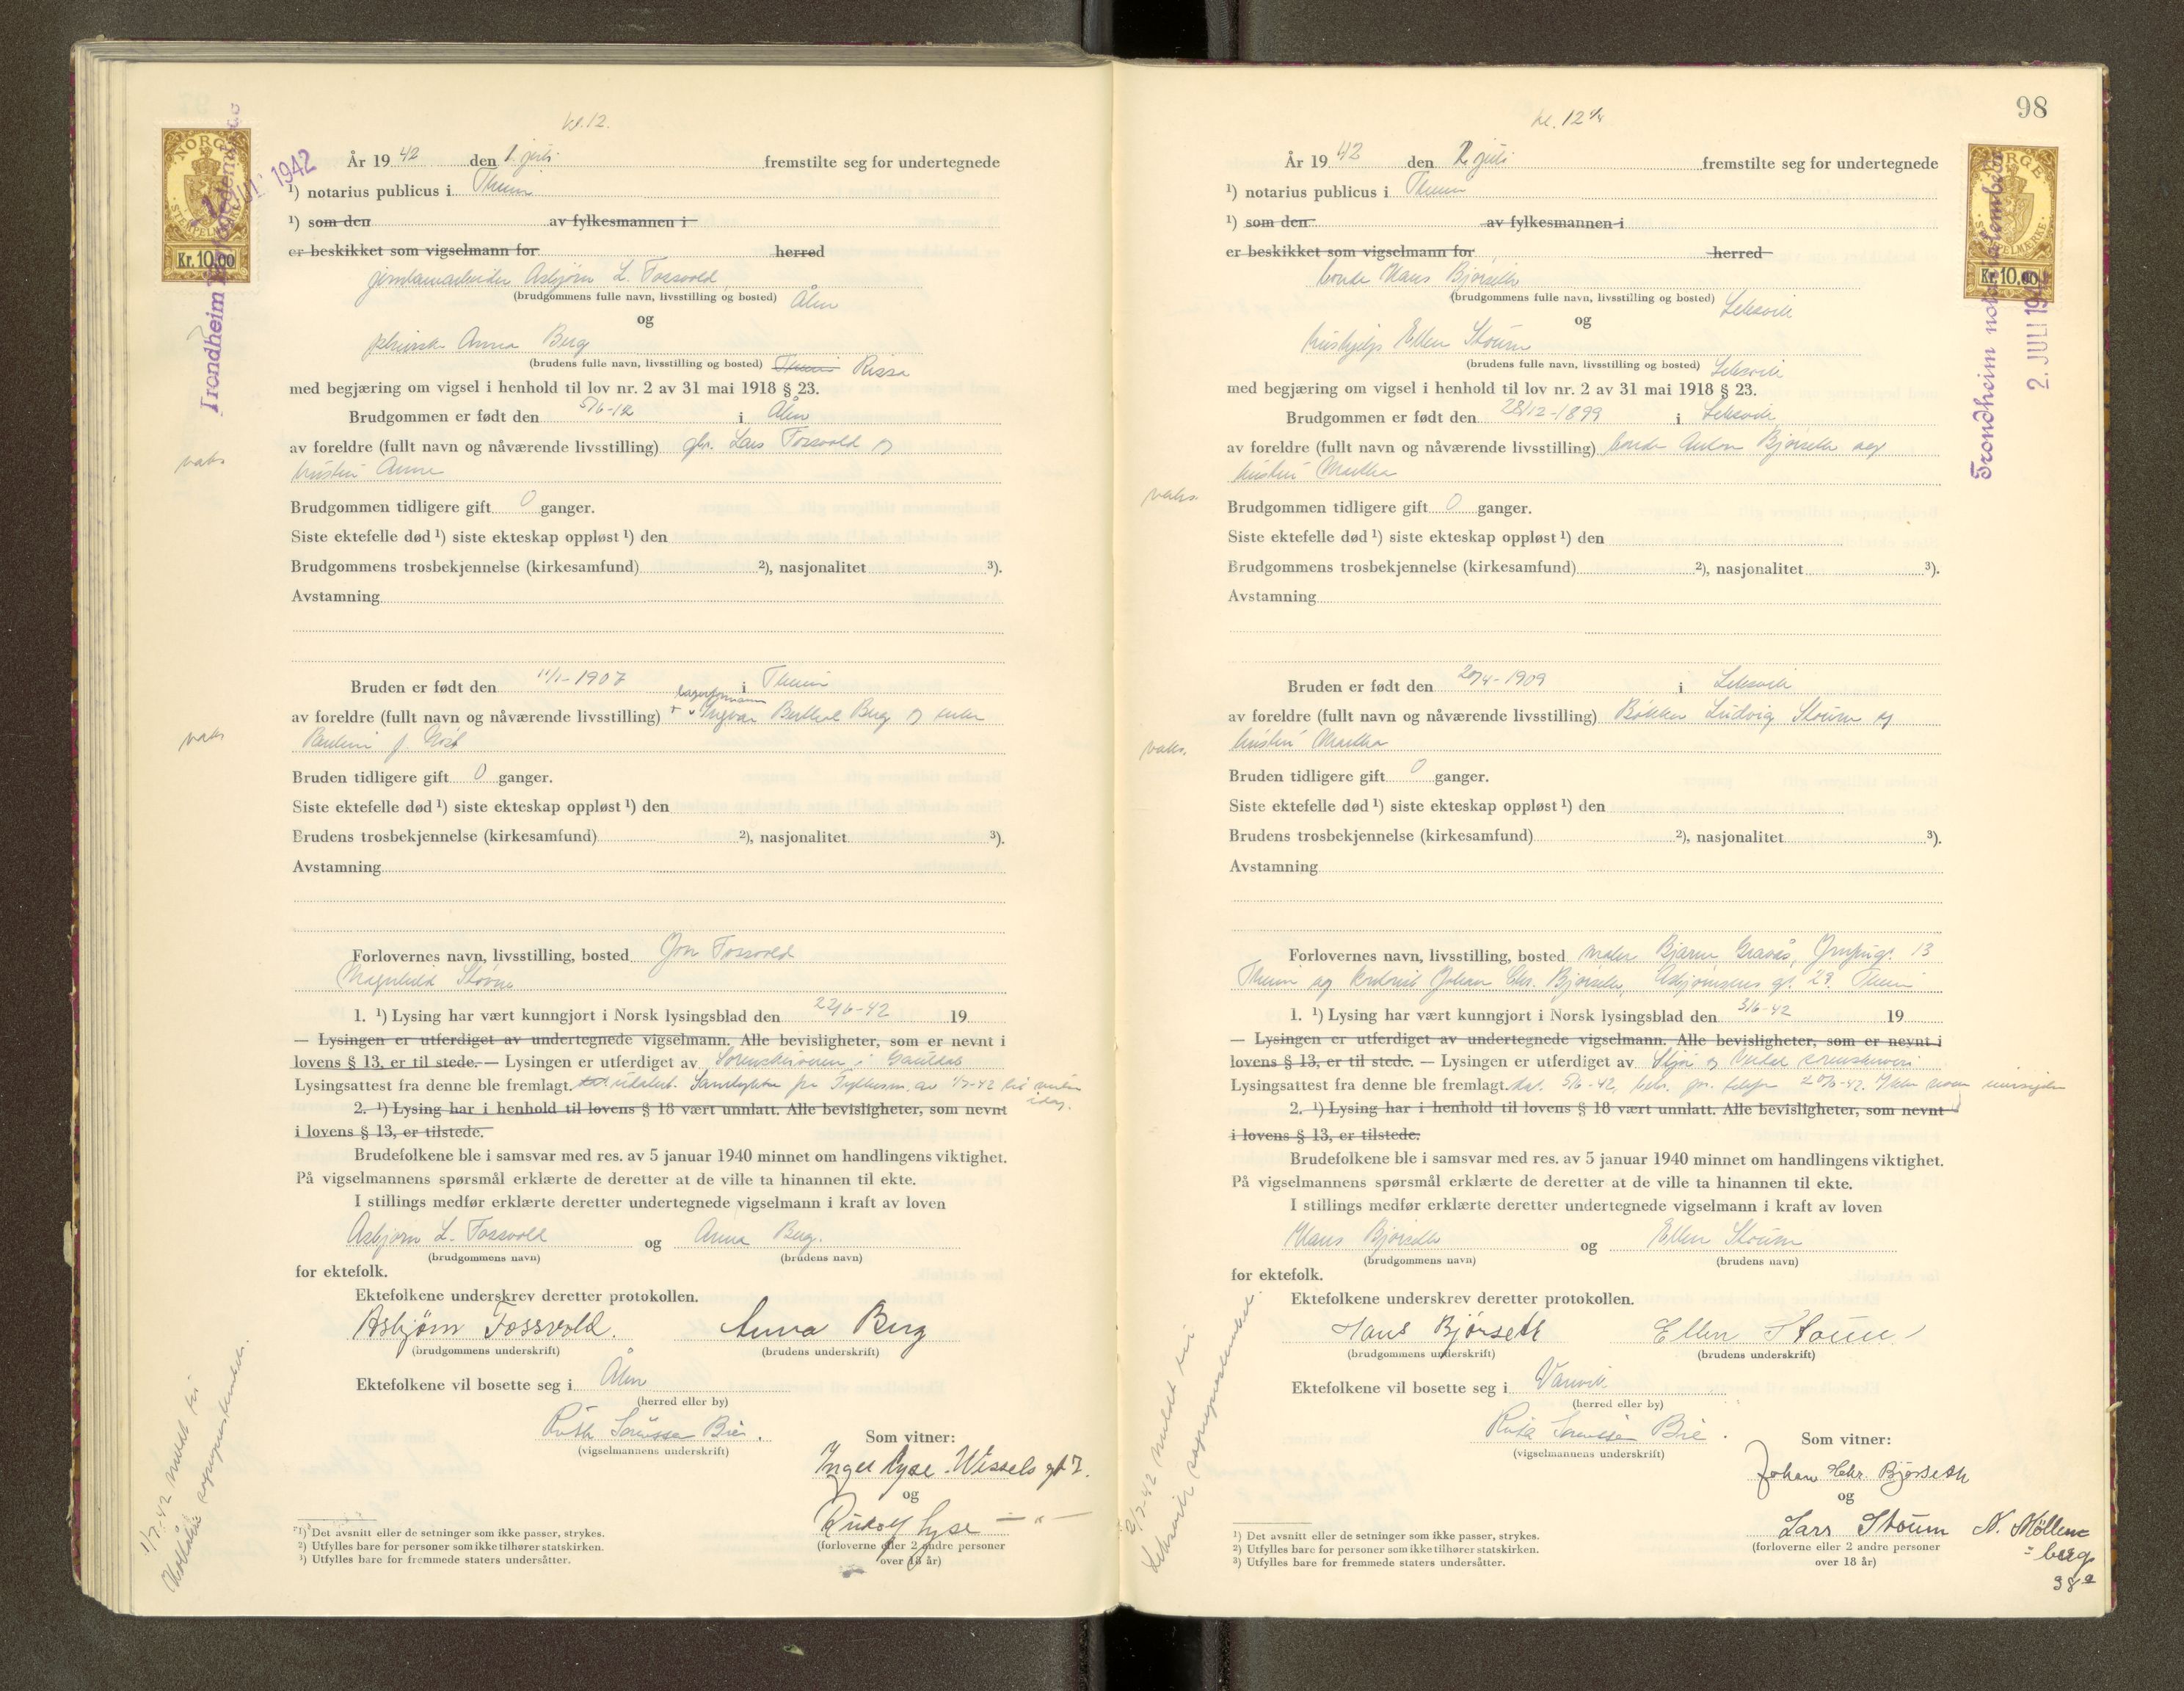 kl. 12.
År 19 42 den 1. juli fremstilte seg for undertegnede
¹) notarius publicus i Theim
¹) som den av fylkesmannen i
er beskikket som vigselmann for herred
Asbjørn L. Fossvold
(brudgommens fulle navn, livsstilling og bosted) Ålen
og
Anna Berg
(brudens fulle navn, livsstilling og bosted) Rissa
med begjæring om vigsel i henhold til lov nr. 2 av 31 mai 1918 § 23.
Brudgommen er født den 5/6-12 i Ålen
av foreldre (fullt navn og nåværende livsstilling) gbr. Lars Fossvold og
hustru Anne
Brudgommen tidligere gift 0 ganger.
Siste ektefelle død ¹) siste ekteskap oppløst ¹) den
Brudgommens trosbekjennelse (kirkesamfund) ²), nasjonalitet ³).
Avstamning
vaks
Bruden er født den 11/1-1907 i Theim
av foreldre (fullt navn og nåværende livsstilling) Ingvar Berthol Berg og enke
Bruden tidligere gift 0 ganger.
Siste ektefelle død ¹) siste ekteskap oppløst ¹) den
Brudens trosbekjennelse (kirkesamfund) ²), nasjonalitet ³).
Avstamning
vaks
Forlovernes navn, livsstilling, bosted Jon Fossvold
Magnhild Støvne
1. ¹) Lysing har vært kunngjort i Norsk lysingsblad den 22/6-42 19
— Lysingen er utferdiget av undertegnede vigselmann. Alle bevisligheter, som er nevnt i
lovens § 13, er til stede. — Lysingen er utferdiget av Sorenskriveren i Gauldal
Lysingsattest fra denne ble fremlagt. Samtykke fra Fylkesm. av 1/7-42
idag.
2. ¹) Lysing har i henhold til lovens § 18 vært unnlatt. Alle bevisligheter, som nevnt
i lovens § 13, er tilstede.
Brudefolkene ble i samsvar med res. av 5 januar 1940 minnet om handlingens viktighet.
På vigselmannens spørsmål erklærte de deretter at de ville ta hinannen til ekte.
I stillings medfør erklærte deretter undertegnede vigselmann i kraft av loven
Asbjørn L. Fossvold og Anna Berg.
(brudgommens navn) (brudens navn)
for ektefolk.
Ektefolkene underskrev deretter protokollen.
Asbjørn Fossvold. Anna Berg
(brudgommens underskrift) (brudens underskrift)
Ektefolkene vil bosette seg i Ålen
(herred eller by)
Ruth Sørenssen Bie.
(vigselmannens underskrift)
Som vitner:
Inger Lyse. Wessels gt 7.
og
Rudolf Lyse — " —
(forloverne eller 2 andre personer
over 18 år)
¹) Det avsnitt eller de setninger som ikke passer, strykes.
²) Utfylles bare for personer som ikke tilhører statskirken.
³) Utfylles bare for fremmede staters undersåtter.
1/7-42 meldt til
sogneprestembede.
NORGE
STEMPELMERKE
Kr. 10.00
1942
98
kl. 12 1/4
År 19 42 den 2. juli fremstilte seg for undertegnede
¹) notarius publicus i Theim
¹) som den av fylkesmannen i
er beskikket som vigselmann for herred
bonde Hans Bjørseth
(brudgommens fulle navn, livsstilling og bosted) Leksvik
og
hushjelp Ellen Stoum
(brudens fulle navn, livsstilling og bosted) Leksvik
med begjæring om vigsel i henhold til lov nr. 2 av 31 mai 1918 § 23.
Brudgommen er født den 28/12-1899 i Leksvik
av foreldre (fullt navn og nåværende livsstilling) bonde Anton Bjørseth og
hustru Martha
vaks.
Brudgommen tidligere gift 0 ganger.
Siste ektefelle død ¹) siste ekteskap oppløst ¹) den
Brudgommens trosbekjennelse (kirkesamfund) ²), nasjonalitet ³).
Avstamning
Bruden er født den 20/4-1909 i Leksvik
av foreldre (fullt navn og nåværende livsstilling) Bøkker Ludvig Stoum og
hustru Martha
vaks.
Bruden tidligere gift 0 ganger.
Siste ektefelle død ¹) siste ekteskap oppløst ¹) den
Brudens trosbekjennelse (kirkesamfund) ²), nasjonalitet ³).
Avstamning
Forlovernes navn, livsstilling, bosted maler Bjarne Graaås, 13
Theim og Johan Chr. Bjørseth, Asbjørnsens gt. 29. Theim
1. ¹) Lysing har vært kunngjort i Norsk lysingsblad den 3/6-42 19
— Lysingen er utferdiget av undertegnede vigselmann. Alle bevisligheter, som er nevnt i
lovens § 13, er til stede. — Lysingen er utferdiget av Stjør og Verdal sorenskriveri
Lysingsattest fra denne ble fremlagt. dat. 5/6-42,
2. ¹) Lysing har i henhold til lovens § 18 vært unnlatt. Alle bevisligheter, som nevnt
i lovens § 13, er tilstede.
Brudefolkene ble i samsvar med res. av 5 januar 1940 minnet om handlingens viktighet.
På vigselmannens spørsmål erklærte de deretter at de ville ta hinannen til ekte.
I stillings medfør erklærte deretter undertegnede vigselmann i kraft av loven
Hans Bjørseth og Ellen Stoum
(brudgommens navn) (brudens navn)
for ektefolk.
Ektefolkene underskrev deretter protokollen.
Hans Bjørseth Ellen Stoum
(brudgommens underskrift) (brudens underskrift)
Ektefolkene vil bosette seg i Vanvik
(herred eller by)
Ruth Sørenssen Bie.
(vigselmannens underskrift)
Som vitner:
Johan Chr. Bjørseth
og
Lars Stoum N. Möllen-
berg
38a
(forloverne eller 2 andre personer
over 18 år)
¹) Det avsnitt eller de setninger som ikke passer, strykes.
²) Utfylles bare for personer som ikke tilhører statskirken.
³) Utfylles bare for fremmede staters undersåtter.
2/7-42 meldt til
Leksvik sogneprestembede.
NORGE
STEMPELMERKE
Kr. 10.00
2. JULI 1942